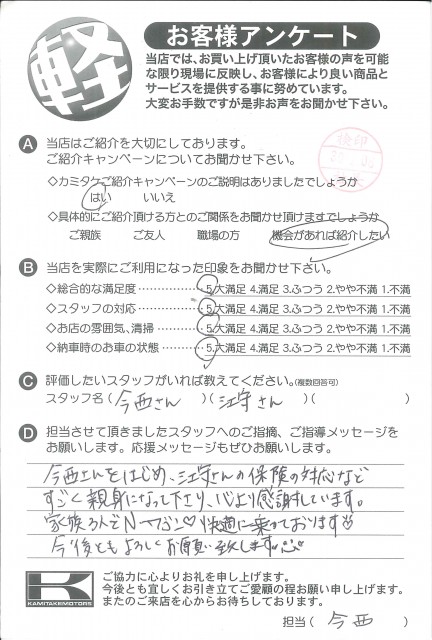 軽
お客様アンケート
当店では、お買い上げ頂いたお客様の声を可能
な限り現場に反映し、お客様により良い商品と
サービスを提供する事に努めています。
大変お手数ですが是非お声をお聞かせ下さい。
A 当店はご紹介を大切にしております。
ご紹介キャンペーンについてお聞かせ下さい。
検印
◇カミタケご紹介キャンペーンのご説明はありましたでしょうか
はい いいえ
◇具体的にご紹介頂ける方とのご関係をお聞かせ頂けますでしょうか
ご親族 ご友人 職場の方 機会があれば紹介したい
B 当店を実際にご利用になった印象をお聞かせ下さい。
◇総合的な満足度 5.大満足 4.満足 3.ふつう 2.やや不満 1.不満
◇スタッフの対応 5.大満足 4.満足 3.ふつう 2.やや不満 1.不満
◇お店の雰囲気、清掃 5.大満足 4.満足 3.ふつう 2.やや不満 1.不満
◇納車時のお車の状態 5.大満足 4.満足 3.ふつう 2.やや不満 1.不満
C 評価したいスタッフがいれば教えてください。(複数回答可)
スタッフ名 ( 今西さん )( 江守さん )( )
D 担当させて頂きましたスタッフへのご指摘、ご指導メッセージを
お願いします。応援メッセージもぜひお願いします。
今西さんをはじめ、江守さんの保険の対応など
すごく親身になって下さり、心より感謝しています。
家族3人でN-ワゴン♡快適に乗っております
今後ともよろしくお願い致します
K
KAMITAKEMOTORS
ご協力に心よりお礼を申し上げます。
今後とも宜しくお引き立てご愛顧の程お願い申し上げます。
またのご来店を心からお待ちしております。
担当 ( 今西 )